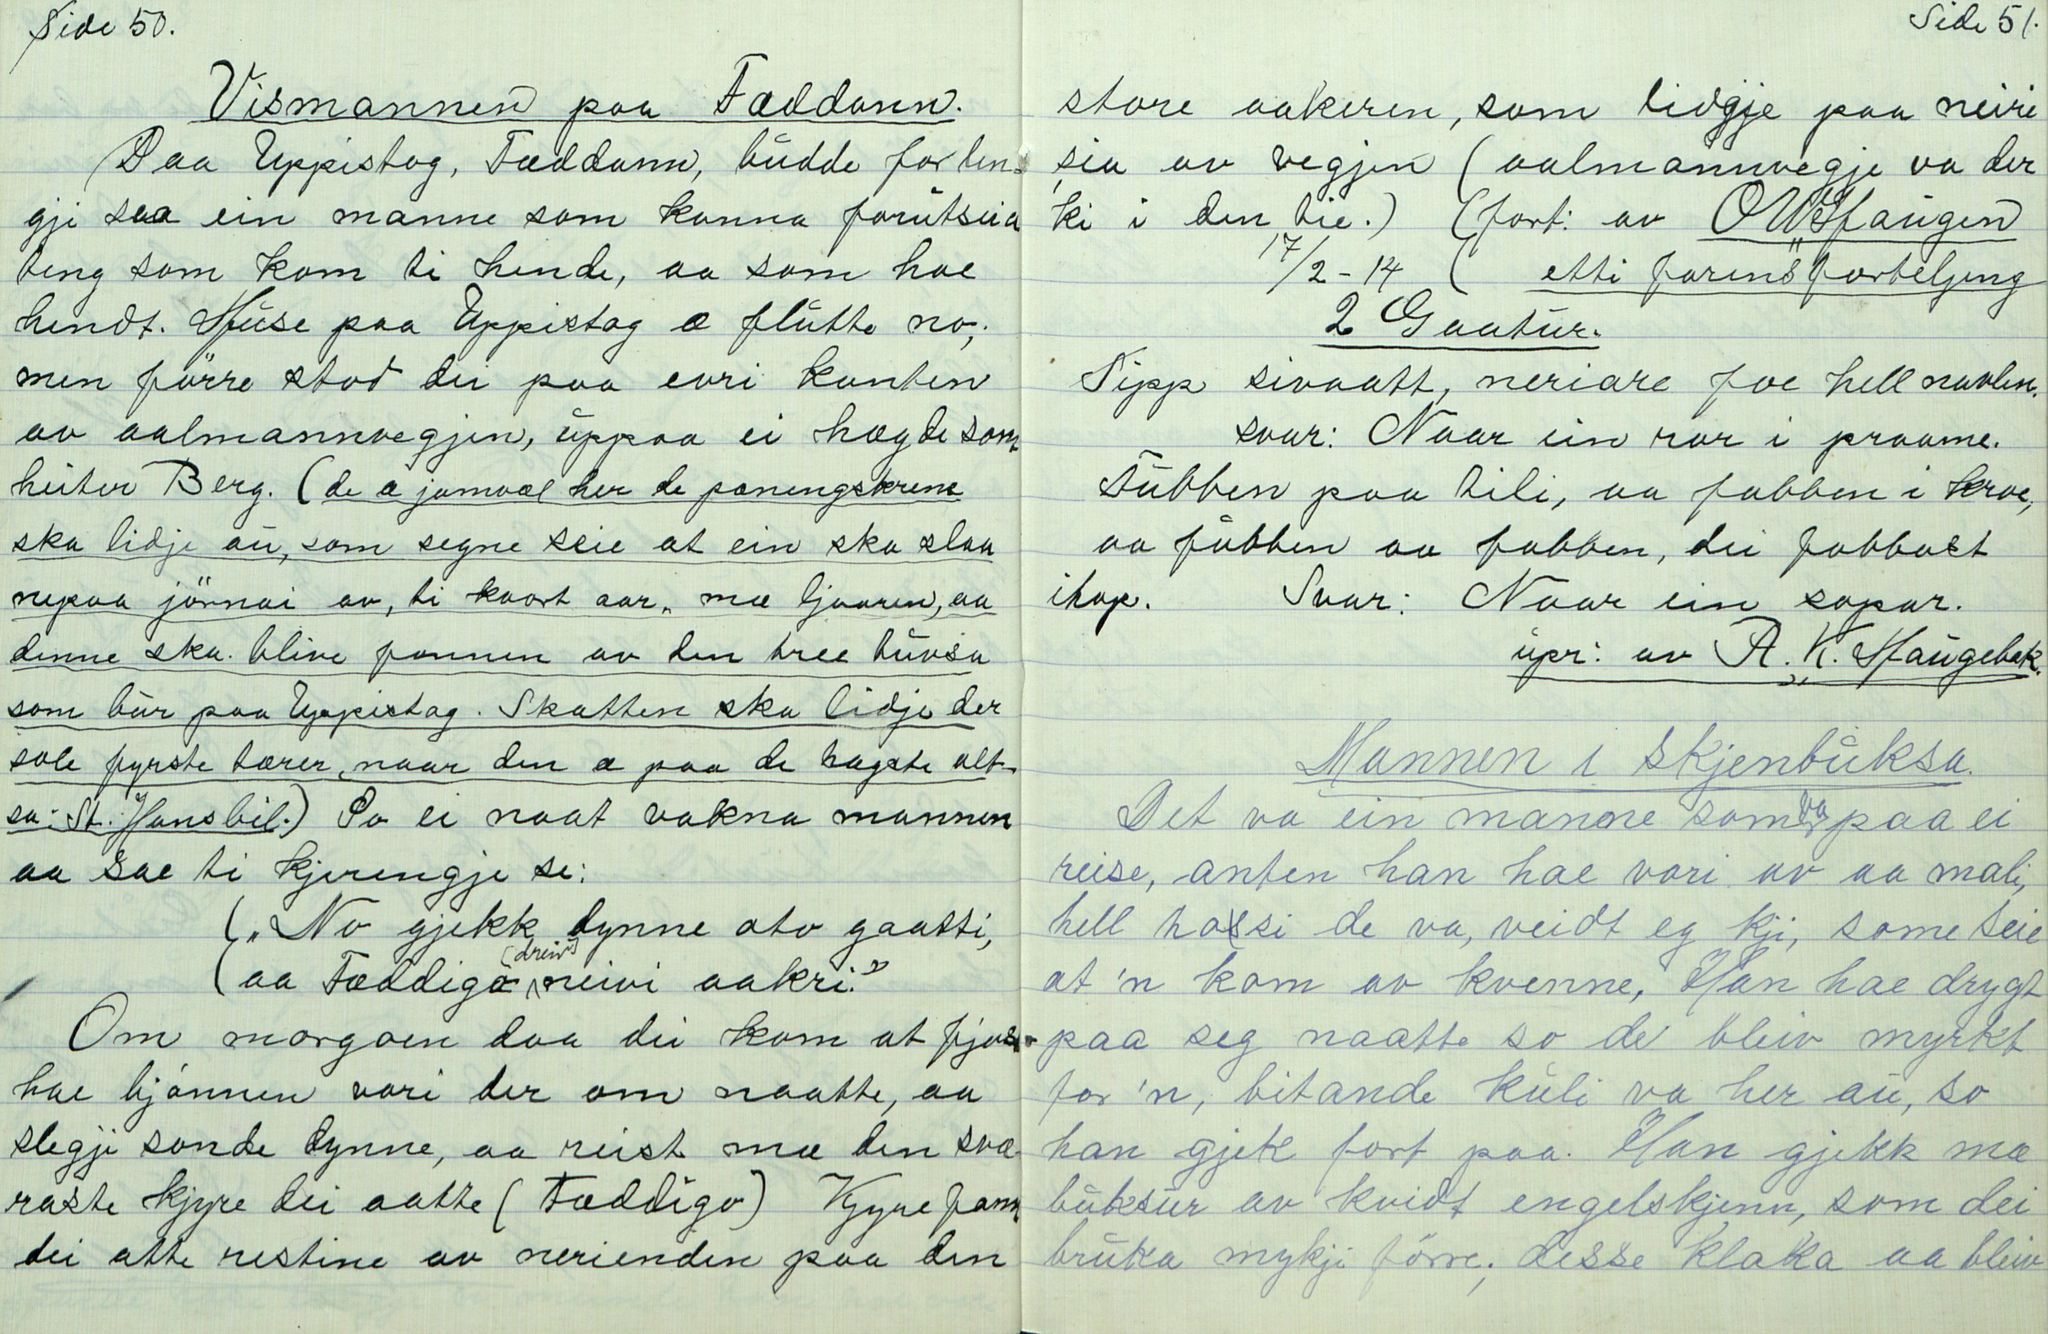 Side 50.
Vismannen paa Fæddann.
Paa Uppistog, Fæddann, budde for len-
gji saa ein manne som kanna forutseia
teng som kom ti hende, aa som hae
hendt. Huse paa Uppistog æ flutte no,
men förre stod dei paa evri kanten
av aalmannvegjen, uppaa ei hægde som
heiter Berg. (de æ jamvæl her de pæningskrine
ska lidje au, som segne seie at ein ska slaa
nepaa jönnai av, ti kvort aar, mæ ljaaren, aa
denne ska blive fonnen av den tree tuvsa
som bur paa Uppistog. Skatten ska lidje der
sole fyrste tærer, naar den æ paa de høgste alt-
sa: St. Hansbil.) So ei naat vakna mannen
aa sae ti kjerengje si:
("No gjekk dynne ato gaatti,
(drein)
(aa Fæddigo neivi aakri."
Om morgoen daa dei kom at fjøs-
hae bjönnen vori der om naatte, aa
slegji sonde dynne, aa reist mæ den svæ-
raste kjyre dei aatte (Fæddigo) Kjyre fann
dei atte restine av nerienden paa den
Side 51.
store aakeren, som lidgje paa neire
sia av vegjen (aalmannvegje va der
ki i den tie.) (fort: av O W Haugen
17/2-14 ( etti farens forteljing
2 Gaatur.
Tipp sivaatt, neriare foe hell navlen.
svar: Naar ein ror i praame.
Tubben paa tili, aa fabben i kroe,
aa fubben aa fabben, dei fabbast
ihop. Svar: Naar ein sopar.
upr: av A. K. Haugebæk.
Mannen i skjenbuksa.
Det va ein manne som va paa ei
reise, anten han hae vori av aa mali,
hell hossi de va, veidt eg kji, some seie
at 'n kom av kvenne, Han hae drygt
paa seg naatte so de bleiv myrkt
for 'n, bitande kuli va her au, so
han gjek fort paa. Han gjekk mæ
buksur av kvidt engelskjenn, som dei
bruka mykji förre; desse klaka aa bleiv